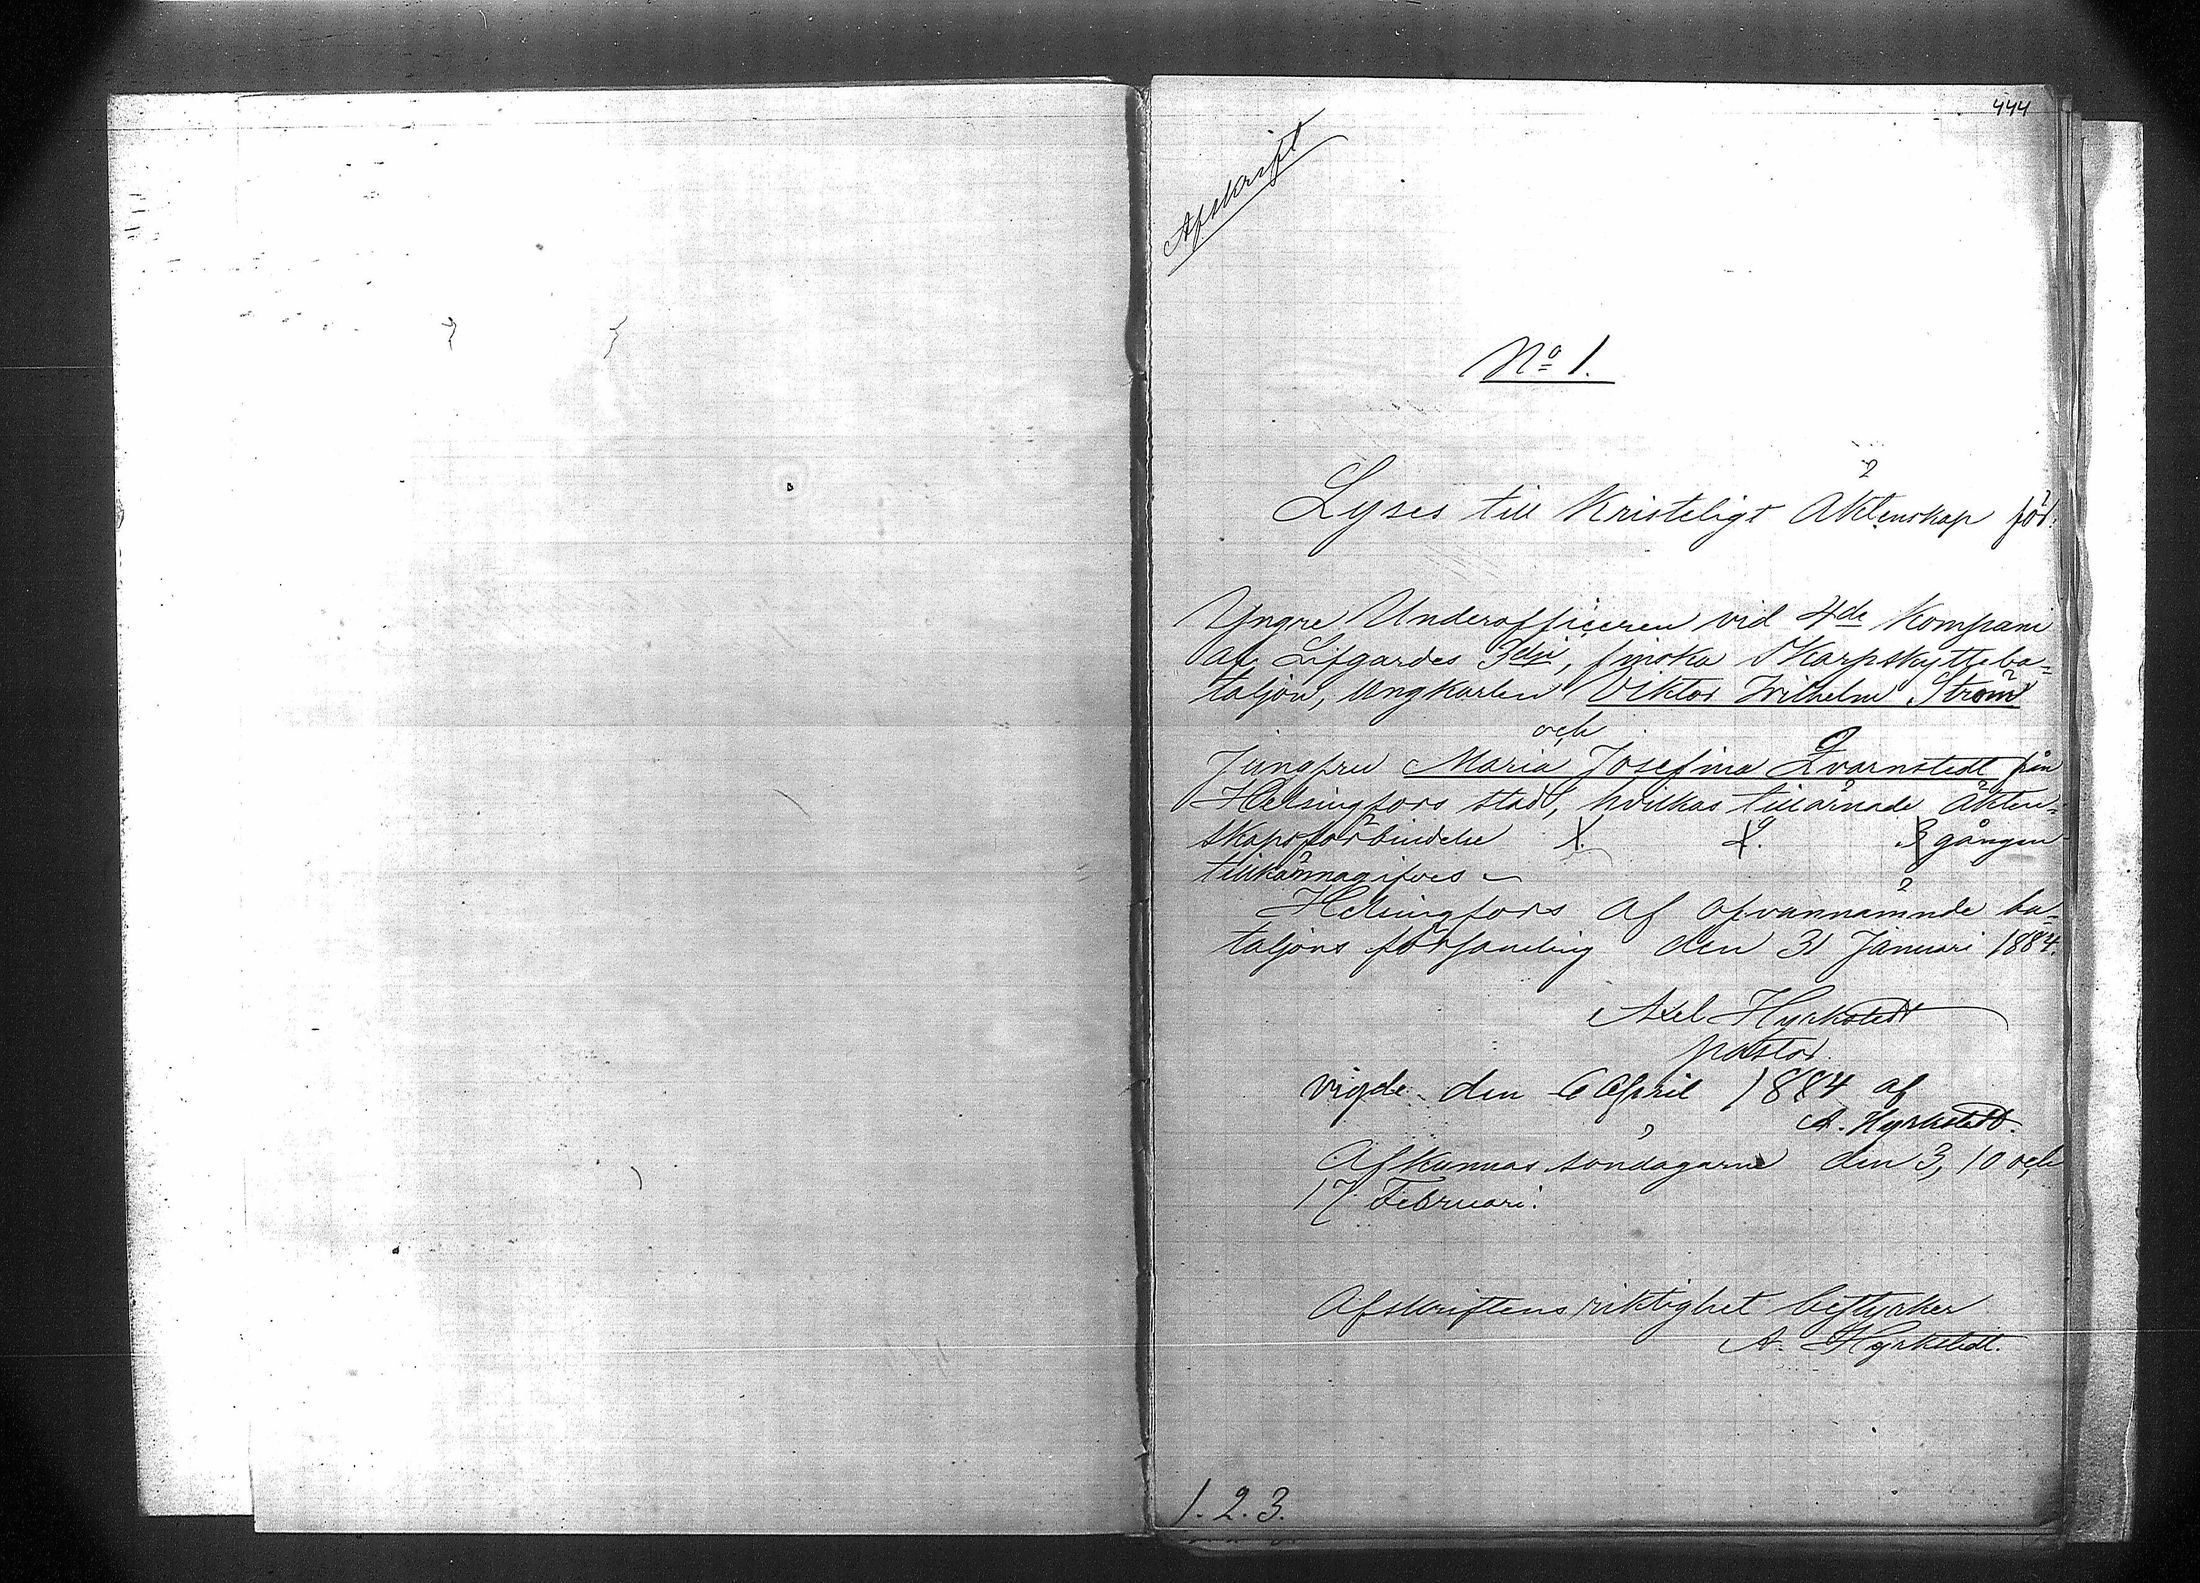 444
Afskrift
No 1.
Lyses till Kristeligt Äktenskap för
Yngre Underofficeren vid 4de Kompani
af Lifgardes 3dje, finska Skarpskytteba=
taljon, Ungkarlen Viktor Wilhelm Ström
och
Jungfru Maria Josefina Qvarnstedt från
Helsingfors stad, hvilkas tillärnade äkten=
skapsförbindelse 1. 2. 3 gången
tillkännagifves
Helsingfors af ofvannämnde ba=
taljons församling den 31 Januari 1884.
Axel Hyrkstedt
pastor.
vigde den 6 April 1884 af
A. Hyrkstedt.
Afkunnas söndagarne den 3, 10 och
17 Februari.
Afskriftens riktighet betyrker
A. Hyrkstedt.
1. 2. 3.